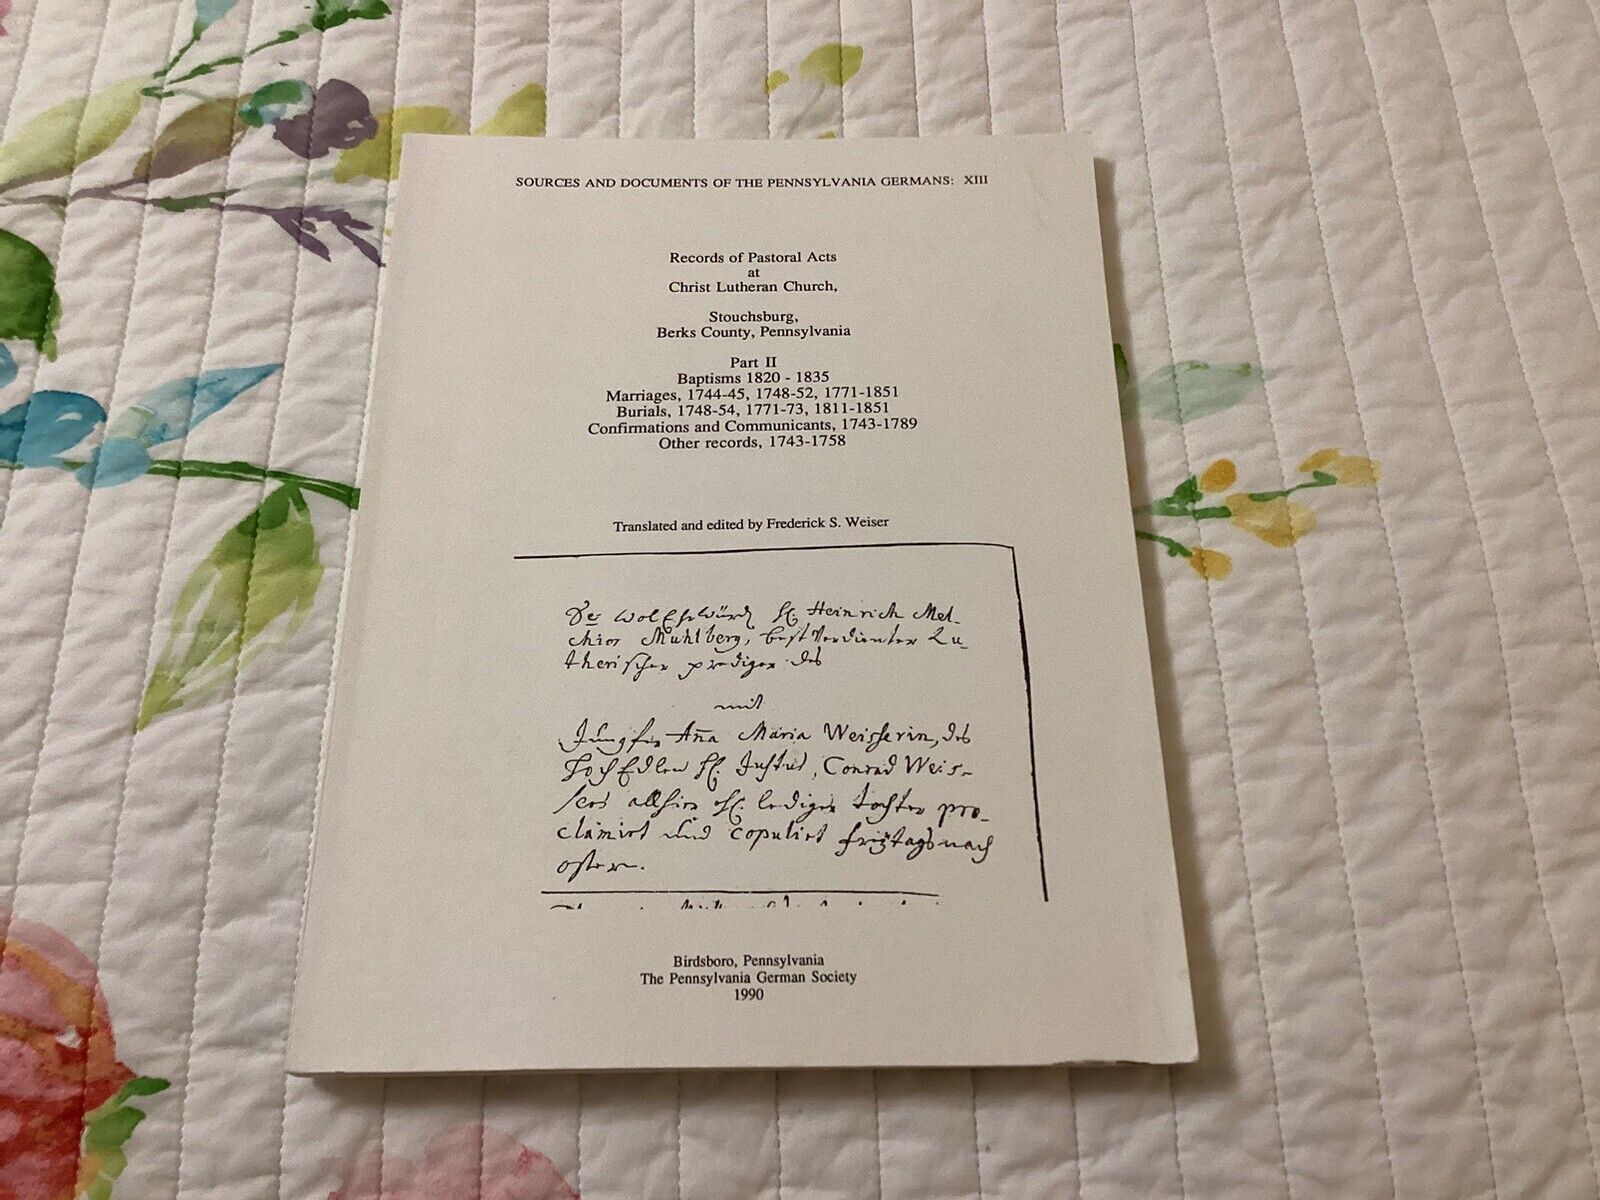 SOURCES AND DOCUMENTS OF THE PENNSYLVANIA GERMANS: XIII
Records of Pastoral Acts
at
Christ Lutheran Church,
Stouchsburg,
Berks County, Pennsylvania
Part II
Baptisms 1820 - 1835
Marriages, 1744-45, 1748-52, 1771-1851
Burials, 1748-54, 1771-73, 1811-1851
Confirmations and Communicants, 1743-1789
Other records, 1743-1758
Translated and edited by Frederick S. Weiser
Heinrich Mel-
chior Muhlberg, best Verdienter Lu-
therischer prediger des
mit
Jungfr Aña Maria Weisserin, des
Conrad Weis-
lediger tochter pro-
clamirt und copulirt freÿtags nach
ostern.
Birdsboro, Pennsylvania
The Pennsylvania German Society
1990